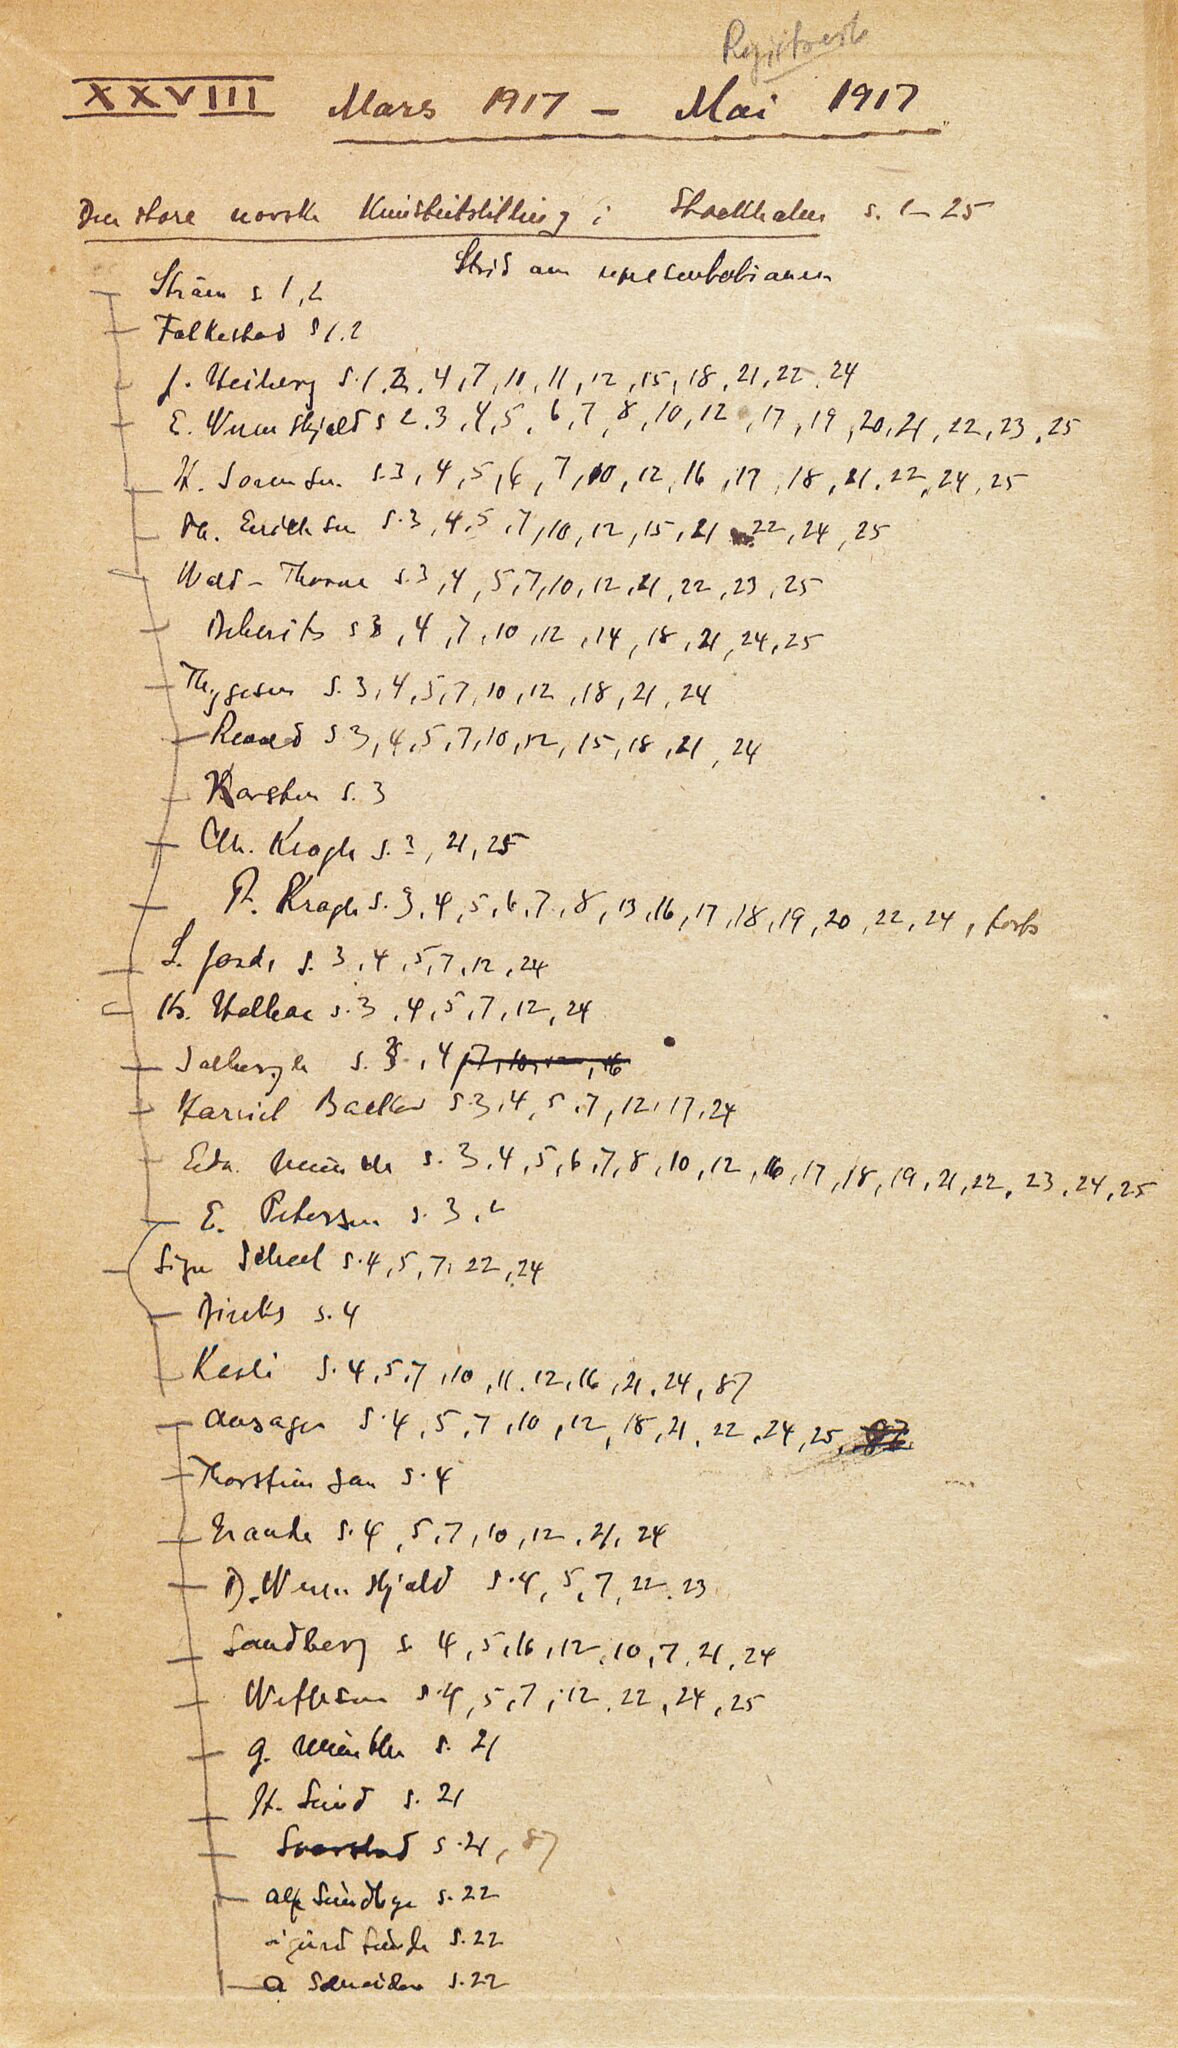 XXVIII Mars 1917 – Mai 1917
Den store norske Kunstutstilling i Stockholm s. 1–25
Strid om representationen
Strøm s 1,2
Folkestad s 1.2
J. Heiberg s. 1, 2, 4, 7, 10, 11, 12, 15, 18, 21, 22, 24
E. Werenskjold s 2, 3, 4, 5, 6, 7, 8, 10, 12, 17, 19, 20, 21, 22, 23, 25
H. Sørensen s. 3, 4, 5, 6, 7, 10, 12, 16, 17, 18, 21, 22, 24, 25
Th. Erichsen s. 3, 4, 5, 7, 10, 12, 15, 21 22, 24, 25
Wold-Thorne s. 3, 4, 5, 7, 10, 12, 21, 22, 23, 25
Deberitz s 3, 4, 7, 10, 12, 14, 18, 21, 24, 25
Thygesen s. 3, 4, 5, 7, 10, 12, 18, 21, 24
Revold s 3, 4, 5, 7, 10, 12, 15, 18, 21, 24
Karsten s. 3
Chr. Krogh s. 3, 21, 25
P. Krogh s. 3, 4, 5, 6, 7, 8, 13, 16, 17, 18, 19, 20, 22, 24,
L. Jorde s. 3, 4, 5, 7, 12, 24
s. 3, 4, 5, 7, 12, 24
Solberg s. 3, 4
Harriet Backer s. 3, 4, 5, 7, 12, 17, 24
Edv. Munch s. 3, 4, 5, 6, 7, 8, 10, 12, 16, 17, 18, 19, 21, 22, 23, 24, 25
E. Peterssen s. 3,
Signe Scheel s. 4, 5, 7, 22, 24
Diriks s. 4
Kavli s. 4, 5, 7, 10, 11, 12, 16, 21, 24, 87
Onsager s. 4, 5, 7, 10, 12, 18, 21, 22, 24, 25, 87
Thorsteinson s. 4
Grande s. 4, 5, 7, 10, 12, 21, 24
D. Werenskjold s. 4, 5, 7, 22, 23
Sandberg s 4, 5, 16, 12, 10, 7, 21, 24
s. 4, 5, 7, 12, 22, 24, 25
G. Munthe s. 21
H. Lund s. 21
Svarstad s. 21, 87
Alf Lundby s. 22
s. 22
s. 22